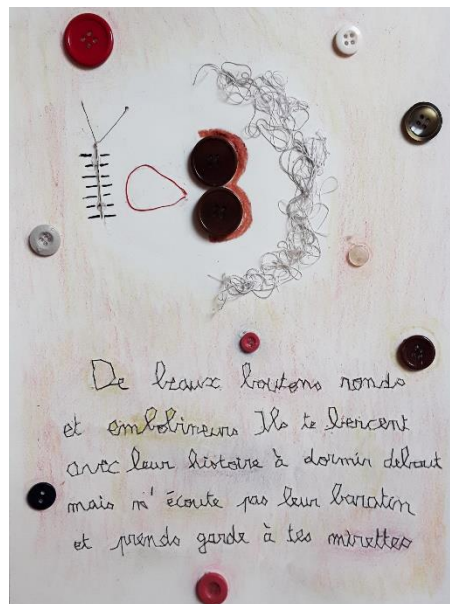 De beaux boutons ronds
et embobineurs Ils te bercent
avec leur histoire à dormir debout
mais n'écoute pas leur baratin
et prends garde à tes mirettes